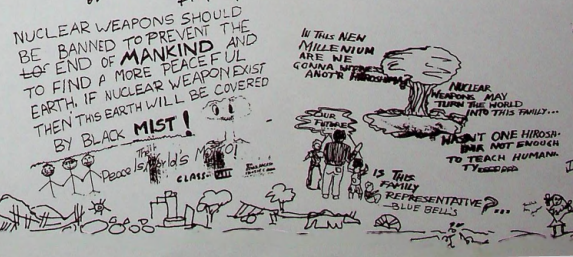 NUCLEAR WEAPONS SHOULD
BE BANNED TO PREVENT THE
END OF MANKIND AND
TO FIND A MORE PEACEFUL
EARTH. IF NUCLEAR WEAPON EXIST
THEN THIS EARTH WILL BE COVERED
BY BLACK MIST!
Peace Is
CLASS-
IN THIS NEW
MILLENIUM
ARE WE
GONNA WITNESS
ANOT'R HIROSHIMA
OUR
FUTURE
NUCLEAR
WEAPONS MAY
TURN THE WORLD
INTO THIS FAMILY...
WASN'T ONE HIROSH-
IMA NOT ENOUGH
TO TEACH HUMANI-
TY
IS THIS
FAMILY
REPRESENTATIVE?...
BLUE BELL'S